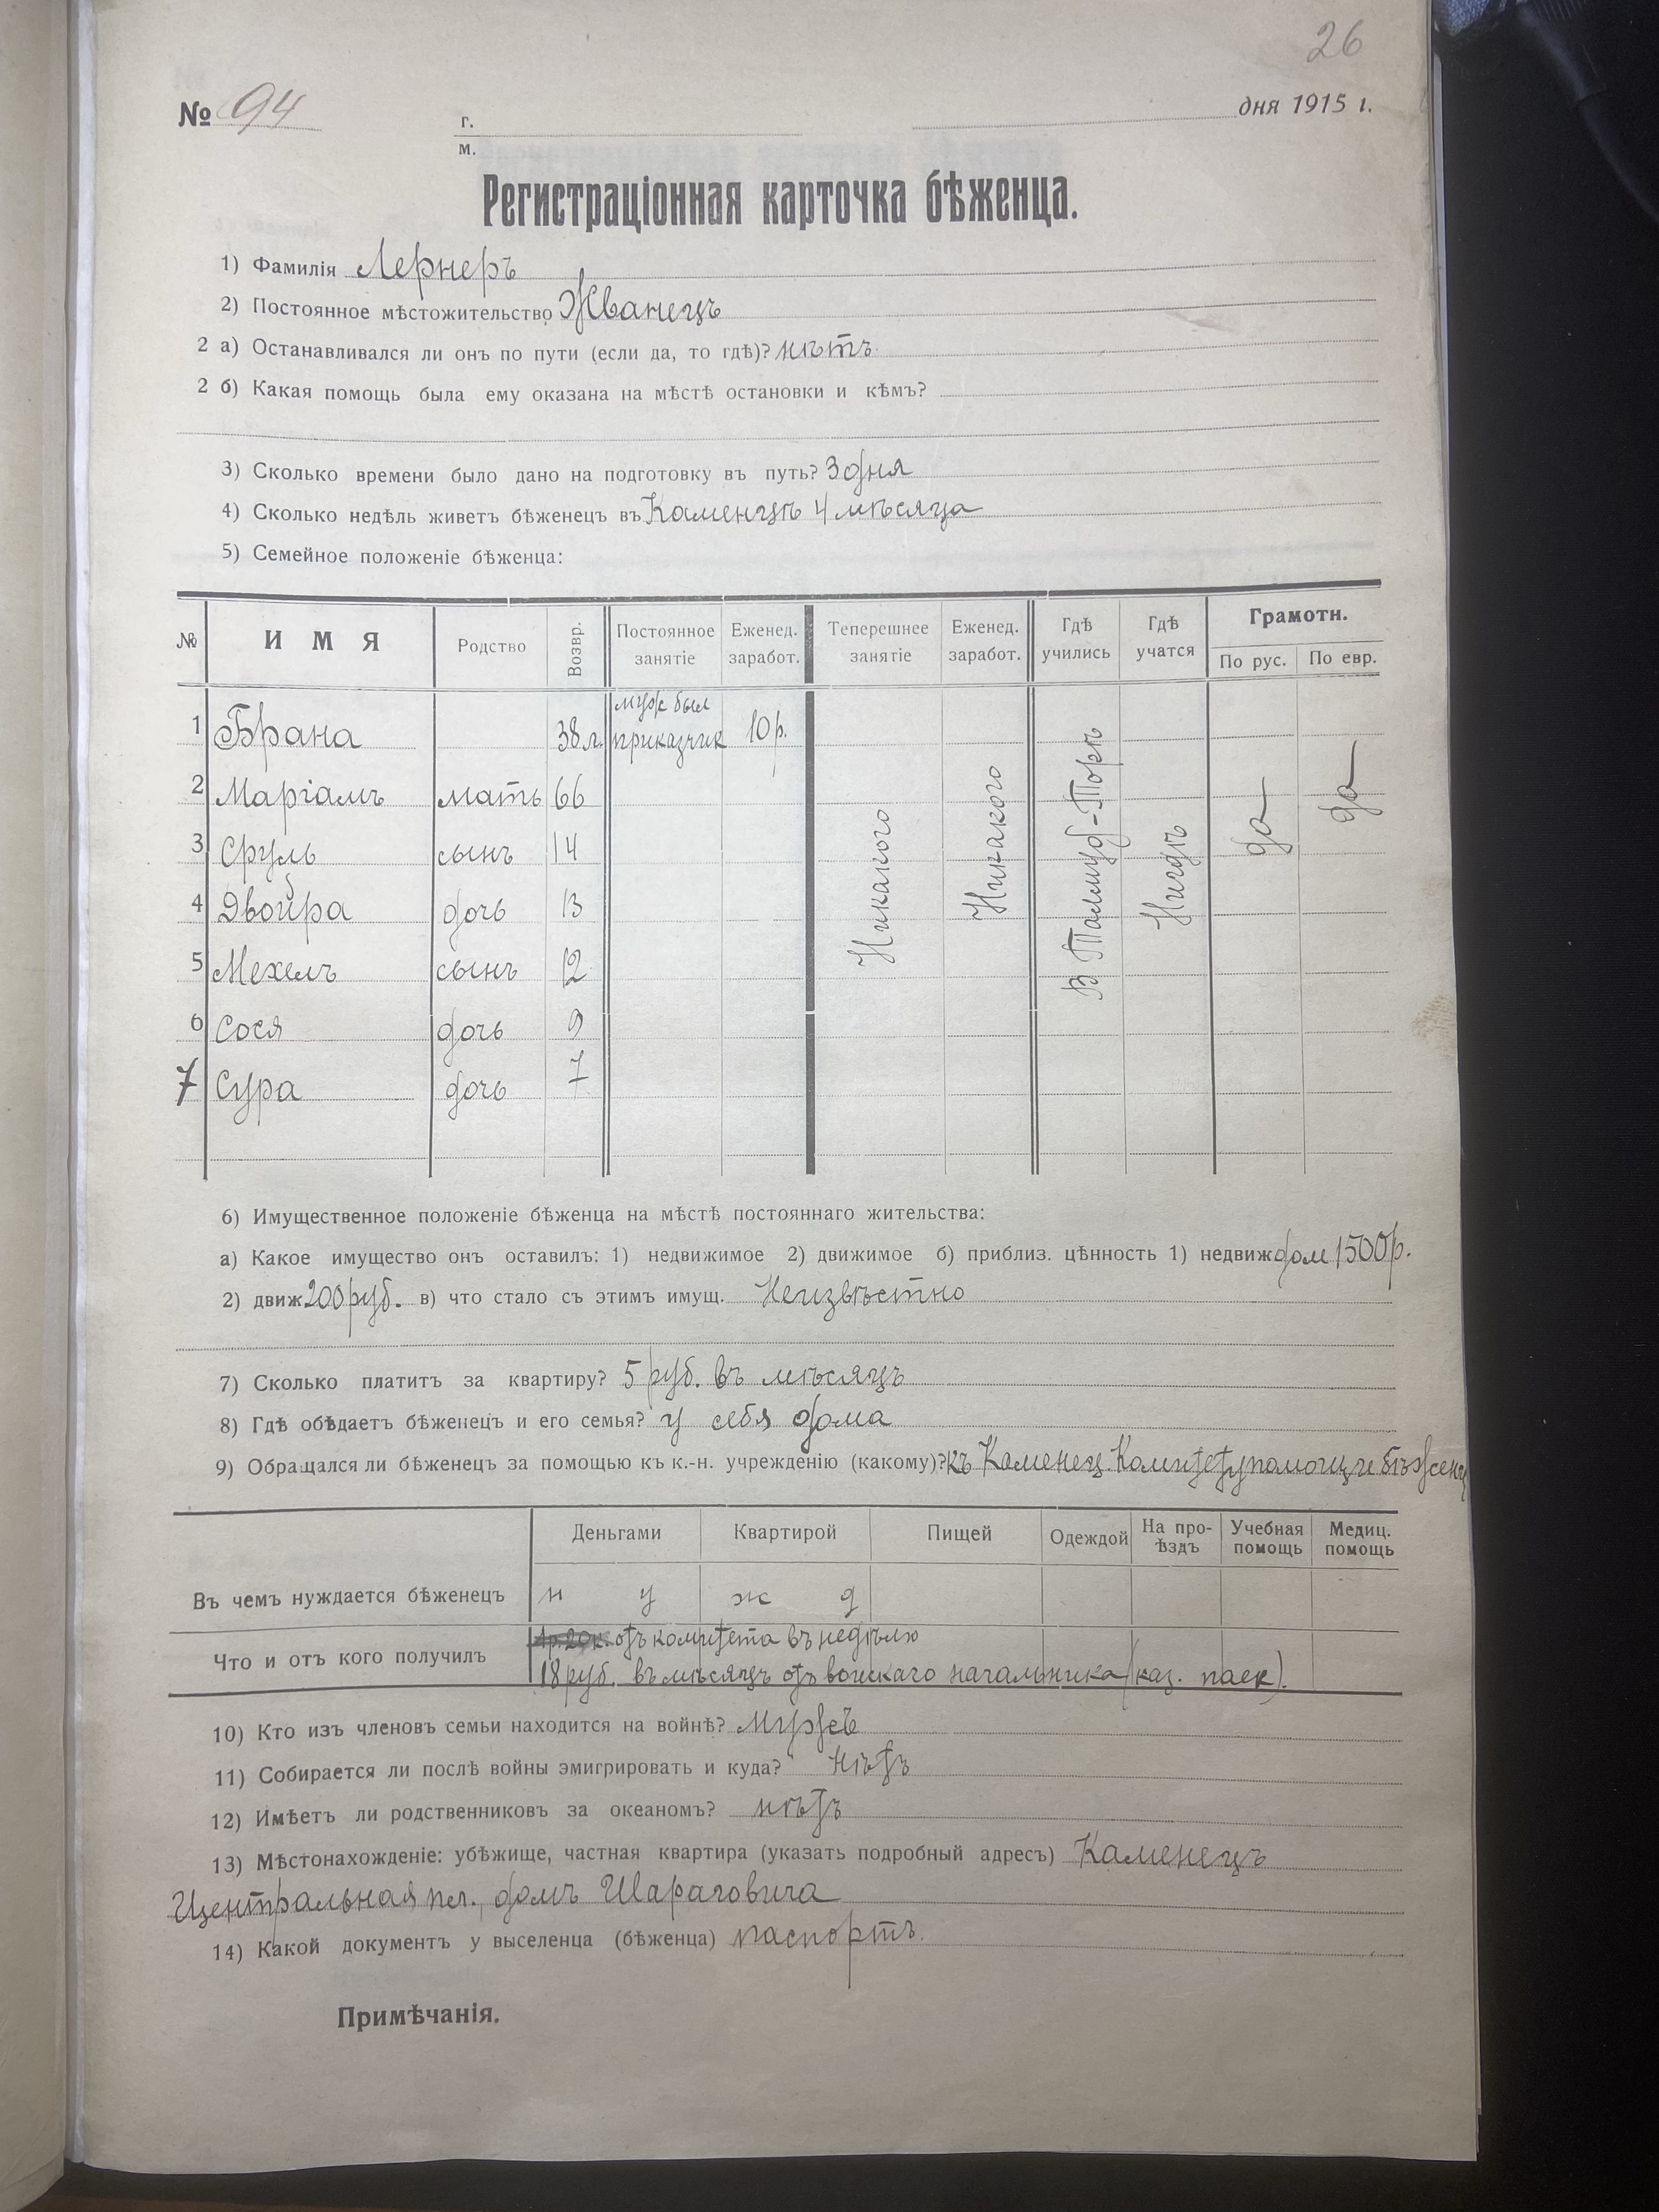 26
№ 94 г. дня 1915 г.
м.
Регистраціонная карточка бѣженца.
1) Фамилія Лернеръ
2) Постоянное мѣстожительство Жванецъ
2 а) Останавливался ли онъ по пути (если да, то гдѣ)? нѣтъ
2 б) Какая помощь была ему оказана на мѣстѣ остановки и кѣмъ?
3) Сколько времени было дано на подготовку въ путь? 3 дня
4) Сколько недѣль живетъ бѣженецъ въ Каменцѣ 4 мѣсяца
5) Семейное положеніе бѣженца:
№ ИМЯ Родство Возвр. Постоянное занятіе Еженед. заработ. Теперешнее занятіе Еженед. заработ. Гдѣ учились Гдѣ учатся Грамотн.
По рус. По евр.
1 Брана 38 л. муж был приказчик 10 р.
2 Маріамъ мать 66
3 Сруль сынъ 14
4 Двойра дочь 13
5 Мехелъ сынъ 12
6 Сося дочь 9
7 Сура дочь 7
Никакого Никакого В Талмуд-Торѣ Нигдѣ да да
6) Имущественное положеніе бѣженца на мѣстѣ постояннаго жительства:
а) Какое имущество онъ оставилъ: 1) недвижимое 2) движимое б) приблиз. цѣнность 1) недвиж дом 1500 р.
2) движ 200 руб. в) что стало съ этимъ имущ. Неизвѣстно
7) Сколько платитъ за квартиру? 5 руб. въ мѣсяцъ
8) Гдѣ обѣдаетъ бѣженецъ и его семья? у себя дома
9) Обращался ли бѣженецъ за помощью къ к.-н. учрежденію (какому)? къ Каменец. Комитету помощи бѣженц
Деньгами Квартирой Пищей Одеждой На проѣздъ Учебная помощь Медиц. помощь
Въ чемъ нуждается бѣженецъ н у ж д
Что и отъ кого получилъ 1р. 20к. отъ комитета въ недѣлю
18 руб. въ мѣсяцъ отъ воинскаго начальника (каз. паек).
10) Кто изъ членовъ семьи находится на войнѣ? Мужъ
11) Собирается ли послѣ войны эмигрировать и куда? нѣтъ
12) Имѣетъ ли родственниковъ за океаномъ? нѣтъ
13) Мѣстонахожденіе: убѣжище, частная квартира (указать подробный адресъ) Каменецъ
Центральная пл., домъ Шараговича
14) Какой документъ у выселенца (бѣженца) паспортъ.
Примѣчанія.